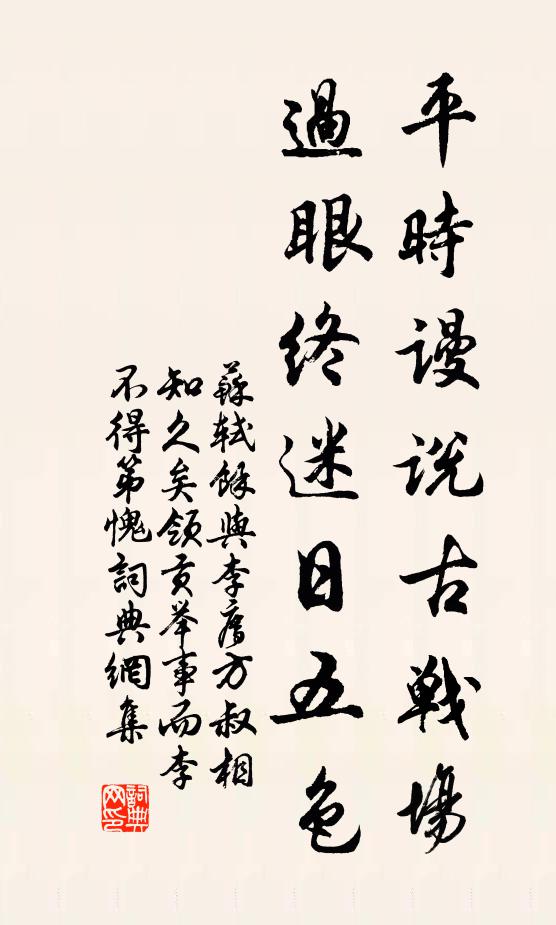 平時謾説古戰場
過眼終迷日五色
蘇軾餘與李廌方叔相
知久矣領貢舉事而李
不得第愧詞典網集
詞典网印